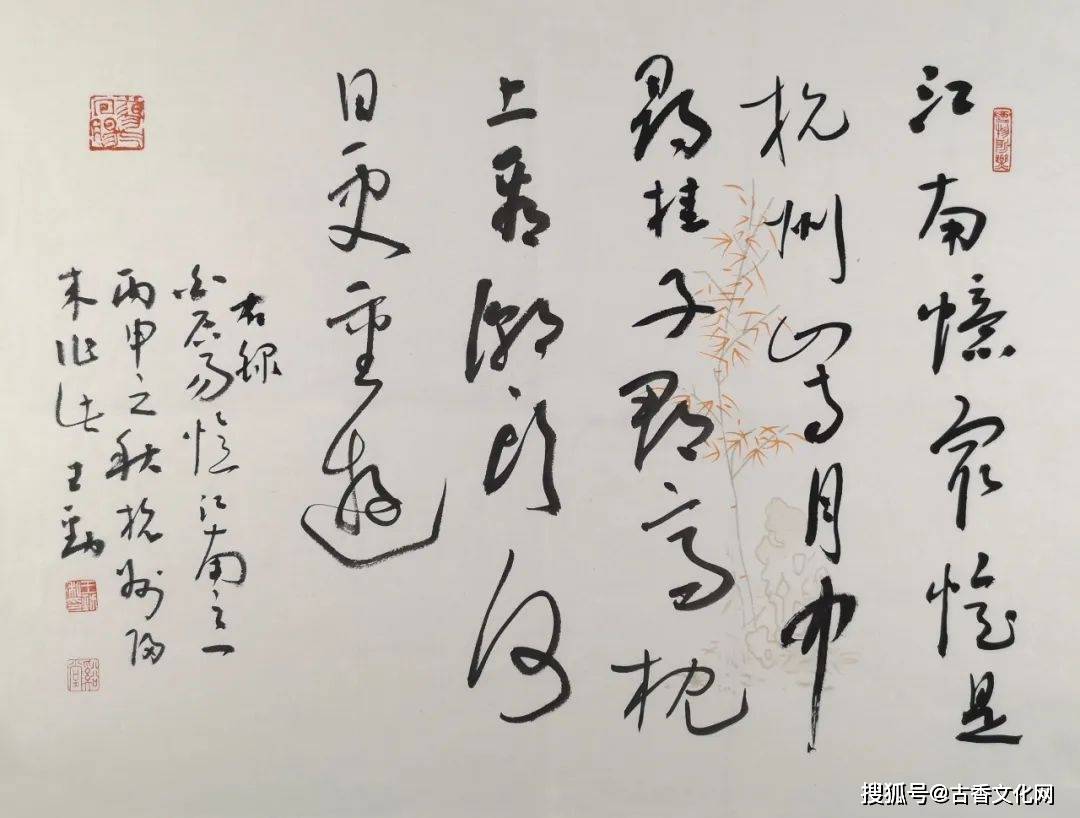 江南憶最憶是
杭州山寺月中
尋桂子郡亭枕
上看潮頭何
日更重遊
右錄
白居易憶江南之一
丙申之秋杭州
王勁
搜狐号@古香文化网